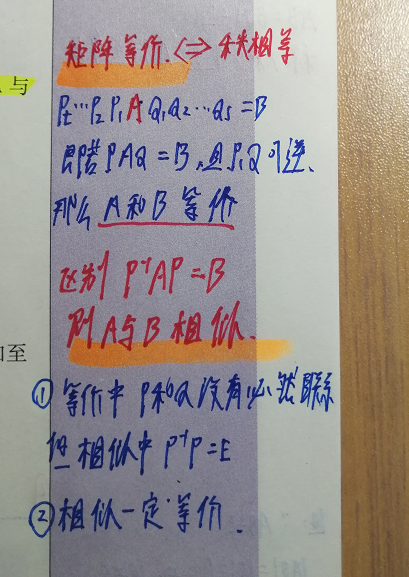 矩阵等价.<=>秩相等
与
Pt…P2P1AQ1Q2…Qs=B
即若PAQ=B,且P,Q可逆、
那么A和B等价
区别 P⁻¹AP=B
则A与B相似.
如至
①等价中P和Q没有必然联系
但相似中P⁻¹P=E
②相似一定等价.